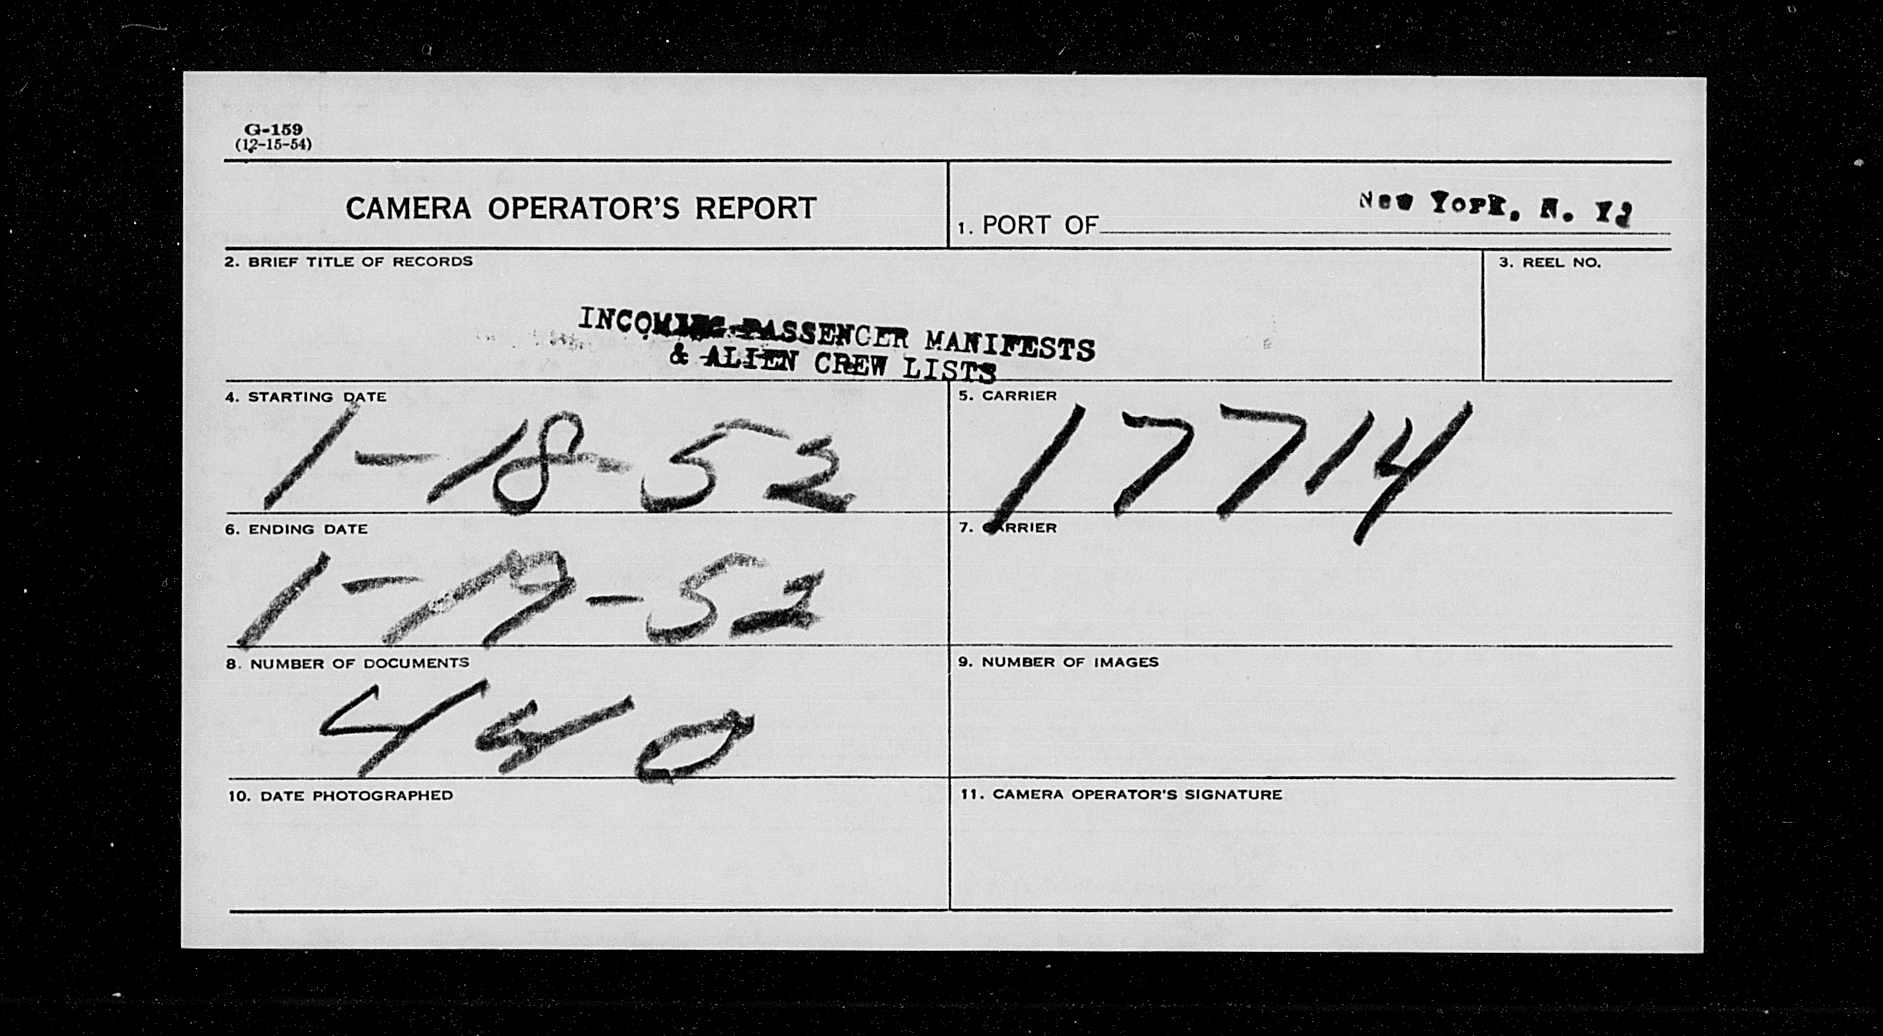 G-159
(12-15-54)
CAMERA OPERATOR'S REPORT
1. PORT OF New York, N. Y.
2. BRIEF TITLE OF RECORDS
3. REEL NO.
INCOMING PASSENGER MANIFESTS
& ALIEN CREW LISTS
4. STARTING DATE
1-18-52
5. CARRIER
17714
6. ENDING DATE
1-19-52
7. CARRIER
8. NUMBER OF DOCUMENTS
440
9. NUMBER OF IMAGES
10. DATE PHOTOGRAPHED
11. CAMERA OPERATOR'S SIGNATURE